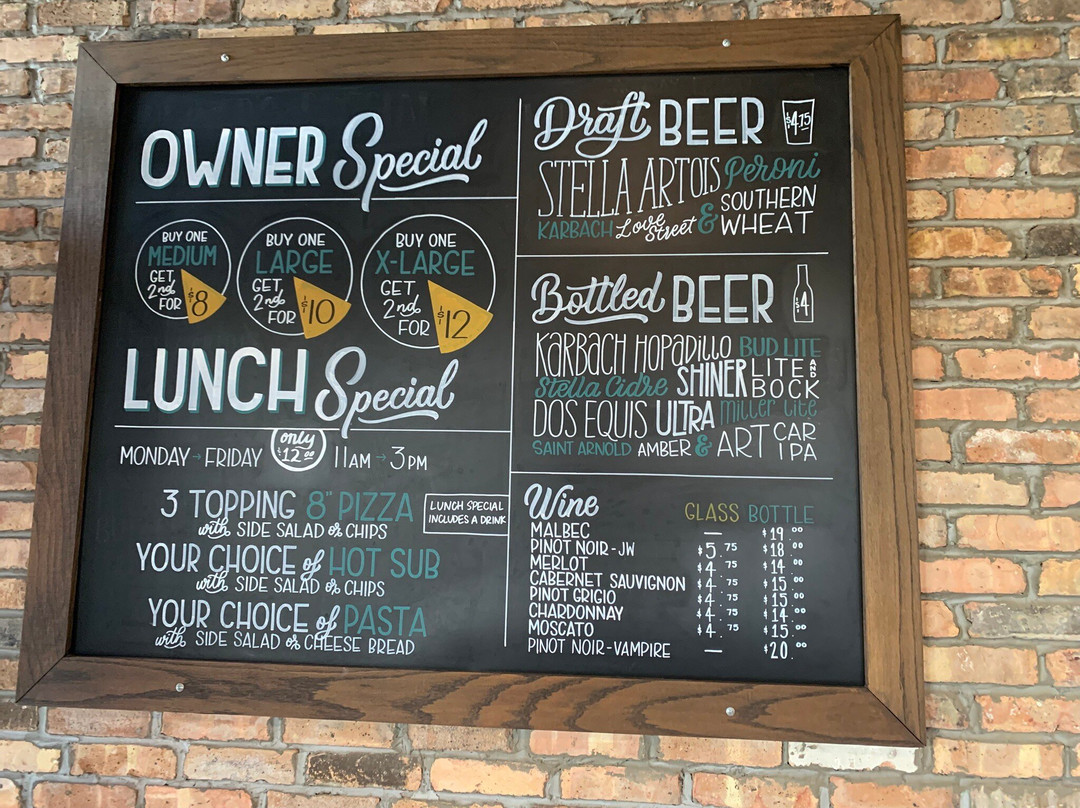 OWNER Special
BUY ONE
MEDIUM
GET
2nd
FOR
$8
BUY ONE
LARGE
GET
2nd
FOR
$10
BUY ONE
X-LARGE
GET
2nd
FOR
$12
LUNCH Special
only
$12.00
MONDAY → FRIDAY
11AM → 3PM
3 TOPPING 8" PIZZA
with SIDE SALAD or CHIPS
LUNCH SPECIAL
INCLUDES A DRINK
YOUR CHOICE of HOT SUB
with SIDE SALAD or CHIPS
YOUR CHOICE of PASTA
with SIDE SALAD or CHEESE BREAD
Draft BEER
$4.75
STELLA ARTOIS Peroni
KARBACH Love Street & SOUTHERN WHEAT
Bottled BEER
$4
KARBACH HOPADILLO BUD LITE
Stella Cidre SHINER LITE AND BOCK
DOS EQUIS ULTRA Miller Lite
SAINT ARNOLD AMBER & ART CAR IPA
Wine GLASS BOTTLE
MALBEC — $19.00
PINOT NOIR-JW $5.75 $18.00
MERLOT $4.75 $14.00
CABERNET SAUVIGNON $4.75 $15.00
PINOT GRIGIO $4.75 $15.00
CHARDONNAY $4.75 $14.00
MOSCATO $4.75 $15.00
PINOT NOIR-VAMPIRE — $20.00